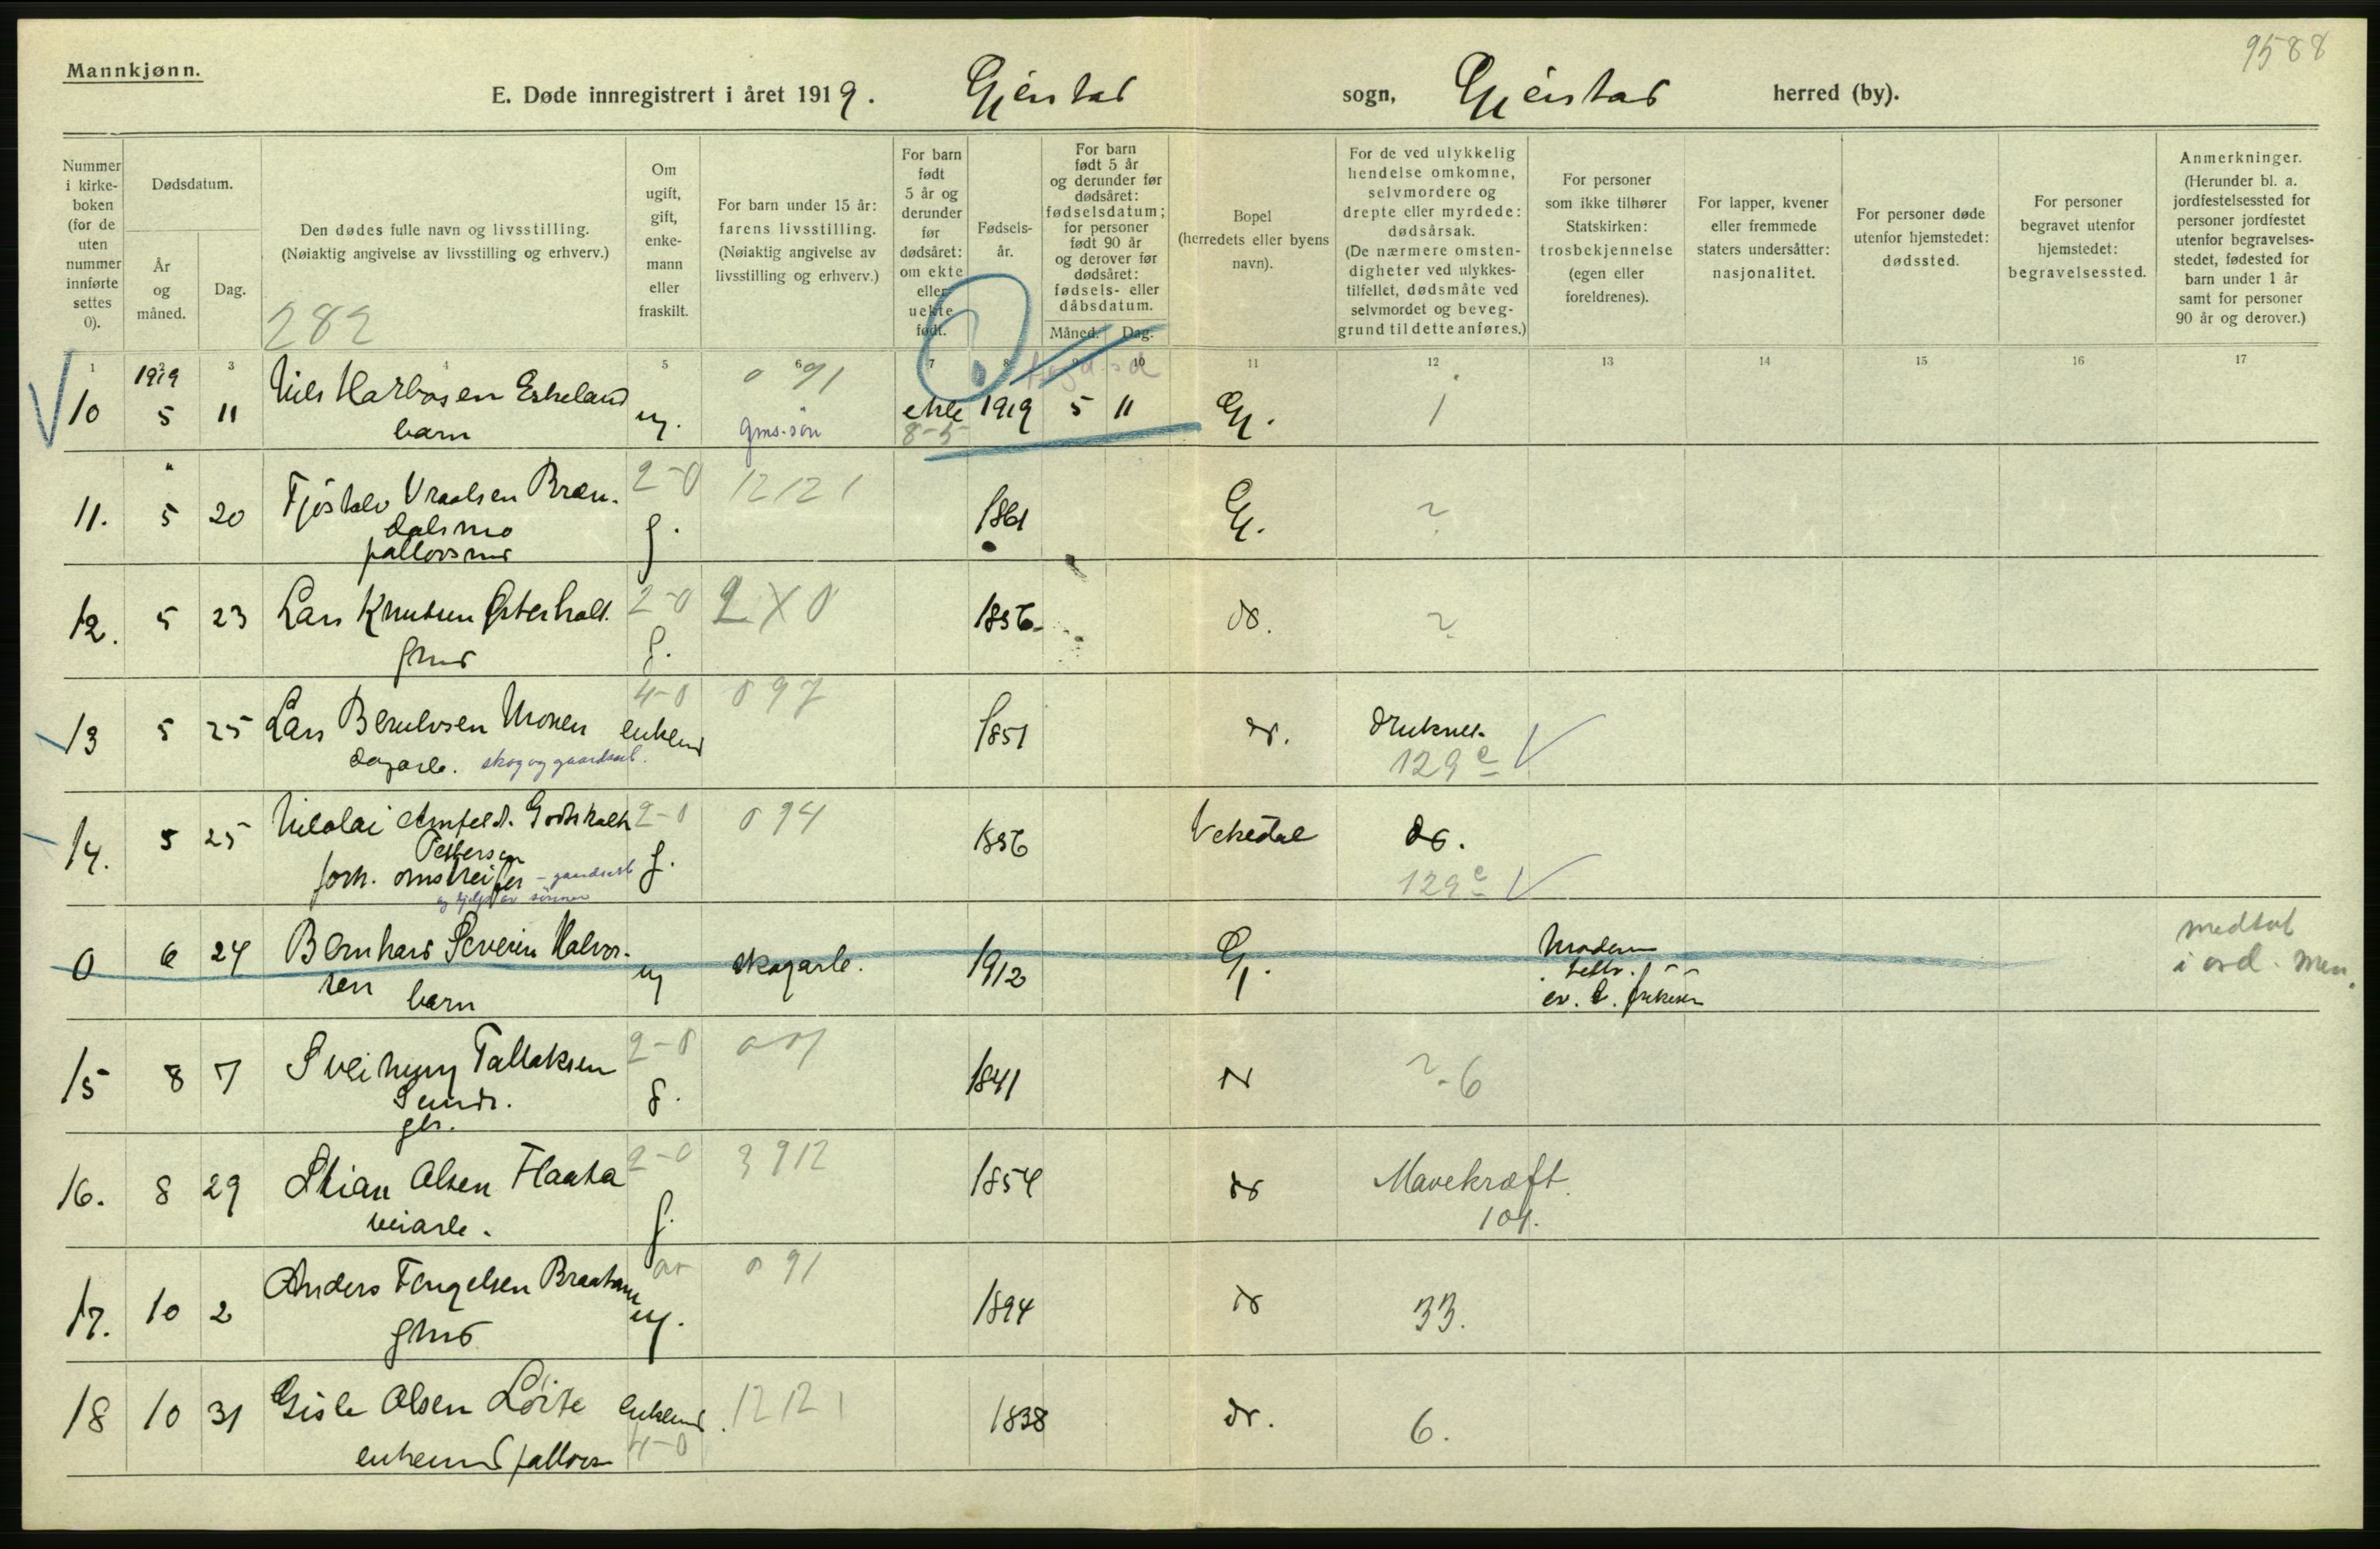 9588
Mannkjønn.
E. Døde innregistrert i året 1919. Gjerstad sogn, Gjerstad herred (by).
Nummer i kirke-boken (for de uten nummer innførte settes 0).
Dødsdatum.
År og måned.
Dag.
Den dødes fulle navn og livsstilling.
(Nøiaktig angivelse av livsstilling og erhverv.)
282
Om ugift, gift, enke-mann eller fraskilt.
For barn under 15 år: farens livsstilling.
(Nøiaktig angivelse av livsstilling og erhverv.)
For barn født 5 år og derunder før dødsåret: om ekte eller uekte født.
Fødsels-år.
For barn født 5 år og derunder før dødsåret: fødselsdatum; for personer født 90 år og derover før dødsåret: fødsels- eller dåbsdatum.
Måned. Dag.
Bopel (herredets eller byens navn).
For de ved ulykkelig hendelse omkomne, selvmordere og drepte eller myrdede: dødsårsak.
(De nærmere omsten-digheter ved ulykkes-tilfellet, dødsmåte ved selvmordet og beveg-grund til dette anføres.)
For personer som ikke tilhører Statskirken: trosbekjennelse (egen eller foreldrenes).
For lapper, kvener eller fremmede staters undersåtter: nasjonalitet.
For personer døde utenfor hjemstedet: dødssted.
For personer begravet utenfor hjemstedet: begravelsessted.
Anmerkninger.
(Herunder bl. a. jordfestelsessted for personer jordfestet utenfor begravelses-stedet, fødested for barn under 1 år samt for personer 90 år og derover.)
1 2 3 4 5 6 7 8 9 10 11 12 13 14 15 16 17
1919 0 91
10 5 11 Nils Harbosen Eskeland ug. ekte 1919 5 11 Gj. 1
barn gms.-søn 8-5
" 2-0 12121
11. 5 20 Tjøstolv Vraalsen Bræn- g. 1861 Gj. ?
dalsmo
2-0 2X0
12. 5 23 Lars Knutsen Østerholt g. 1856 do. ?
gmd
4-0 0 97
13 5 25 Lars Berulvsen Moen enkem 1851 do. druknet
dagarb. skog og gaardsarb. 129 e
2-0 0 94
14. 5 25 Nikolai Amfeldt Godtskalk g. 1856 Vekedal do.
Pettersen
forh. omstreifer - gaardsarb 129 e
og hjelp av sønner
0 6 24 Bernhard Severin Halvor- ug skogarb. 1912 Gj. Moderen medtat
sen tilh. i ord. men.
barn ev. l. frikirken
2-0
15 8 7 Sveinung Tallaksen g. 1841 do ? 6
Sunds.
2-0 3912
16. 8 29 Stian Olsen Flaata g. 1854 do Mavekræft.
veiarb. 104.
0 91
17. 10 2 Anders Tengelsen Braaten ug. 1894 do 33.
gmd
12121
18 10 31 Gisle Olsen Löite enkem 1838 do. 6.
enkemd 4-0